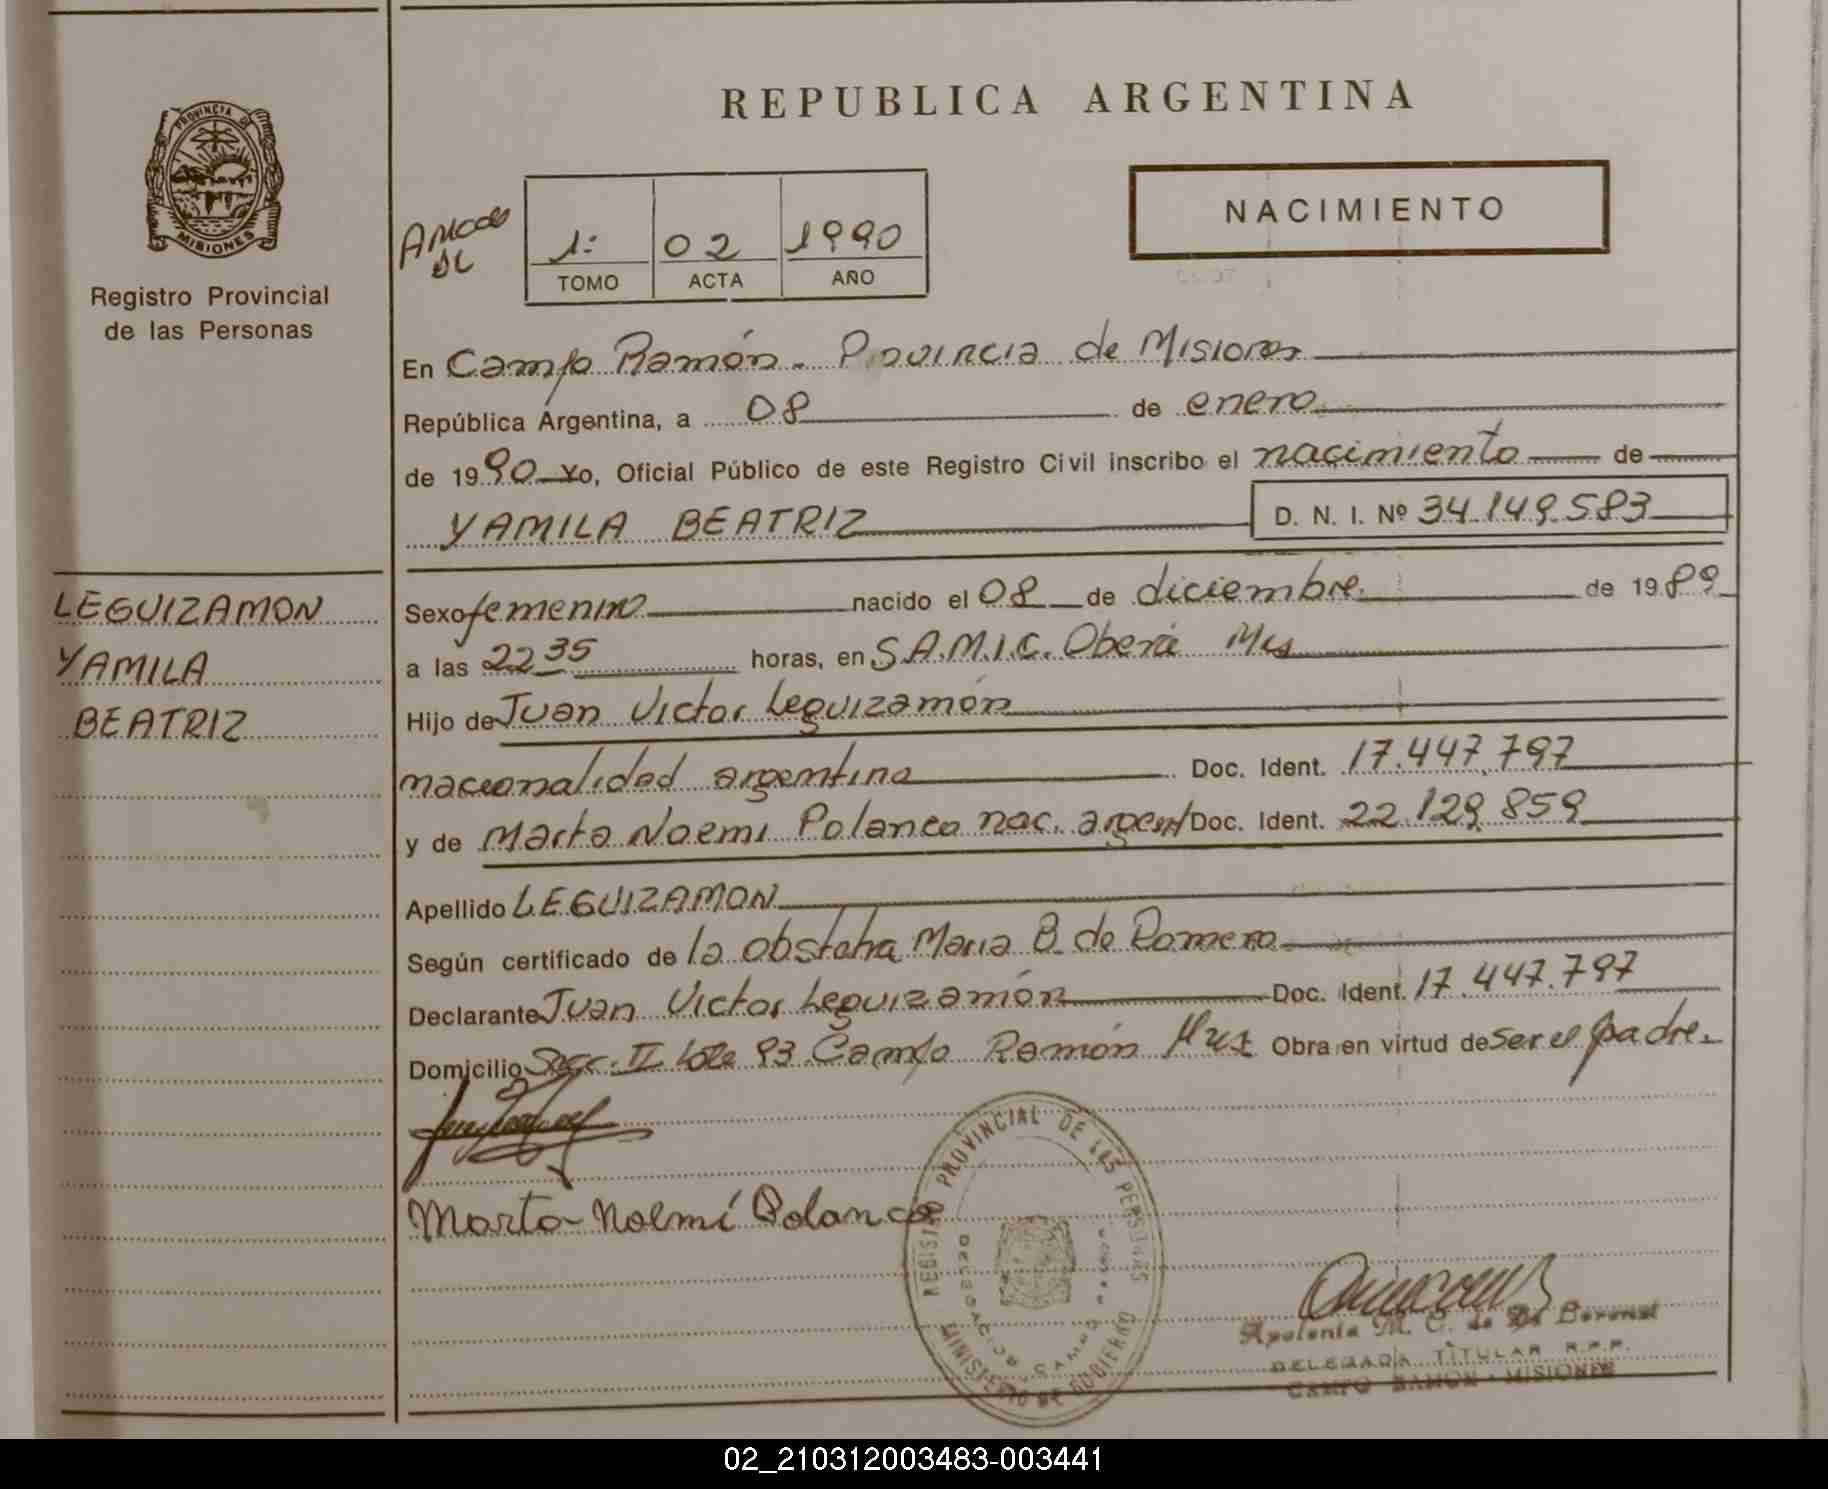 PROVINCIA DE
MISIONES
Registro Provincial
de las Personas
LEGUIZAMON
YAMILA
BEATRIZ
REPUBLICA ARGENTINA
NACIMIENTO
1:
02
1990
TOMO
ACTA
AÑO
En Campo Ramón. Provincia de Misiones
República Argentina, a 08 de enero
de 1990 Yo, Oficial Público de este Registro Civil inscribo el nacimiento de
YAMILA BEATRIZ D. N. I. Nº 34.149.583
Sexo femenino nacido el 08 de diciembre de 1989
a las 22 35 horas, en S.A.M.I.C. Oberá Mis
Hijo de Juan Victor Leguizamón
nacionalidad argentina Doc. Ident. 17.447.797
y de Marta Noemi Polanco nac. argent Doc. Ident. 22.129.859
Apellido LEGUIZAMON
Según certificado de la obstetra Maria B. de Romero
Declarante Juan Victor Leguizamón Doc. Ident. 17.447.797
Domicilio Secc. II Lote 93 Campo Ramón Mnes Obra en virtud de ser el padre.
Marta Noemí Polanco
REGISTRO PROVINCIAL DE LAS PERSONAS
MINISTERIO DE GOBIERNO
Apolonia M. C. de
DELEGADA TITULAR R.P.P.
CAMPO RAMON - MISIONES
02_210312003483-003441